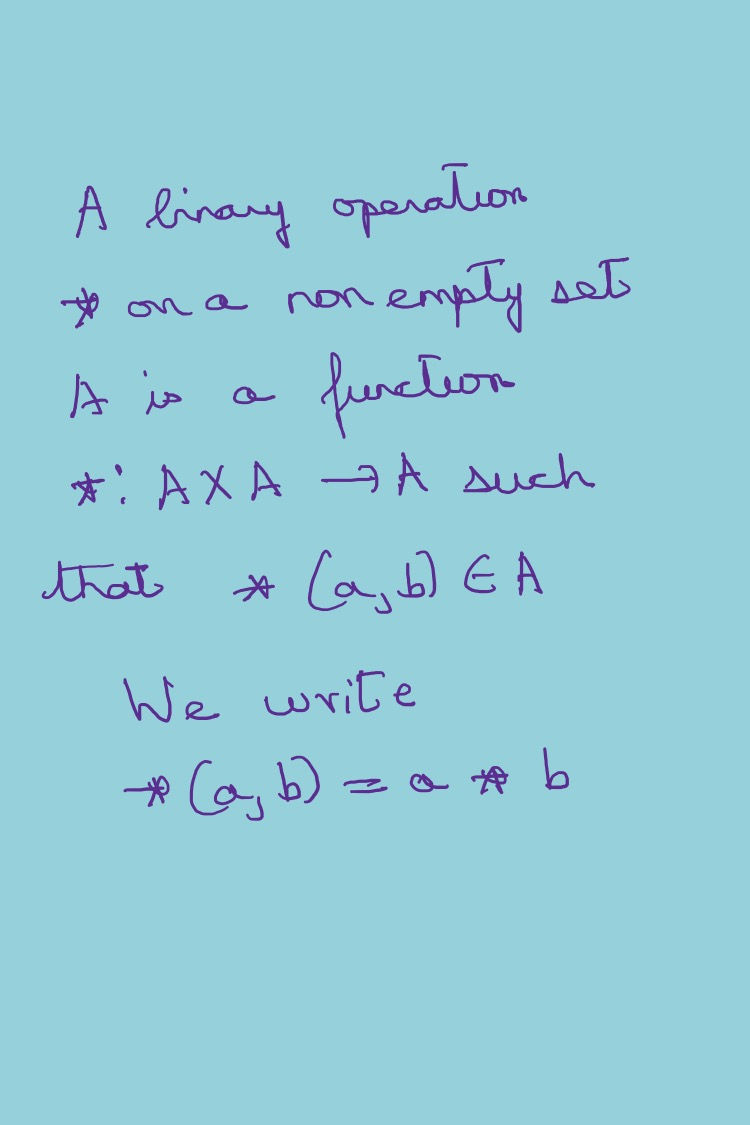 A binary operation
* on a non empty set
A is a function
*: A X A → A such
that * (a, b) ∈ A
We write
* (a, b) = a * b